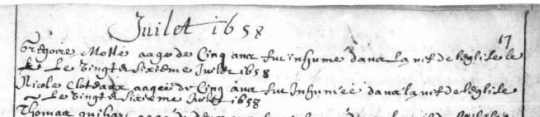 Juilet 1658
17
Gregoire Motte aage de Cinq ans fut inhume dans la nef de leglise le
Le vingt & sixieme Juilet 1658
Nicole Cloteaux aagee de Cinq ans fut Inhumee dans la nef de leglise
Le vingt & sixieme Juilet 1658
Thomas